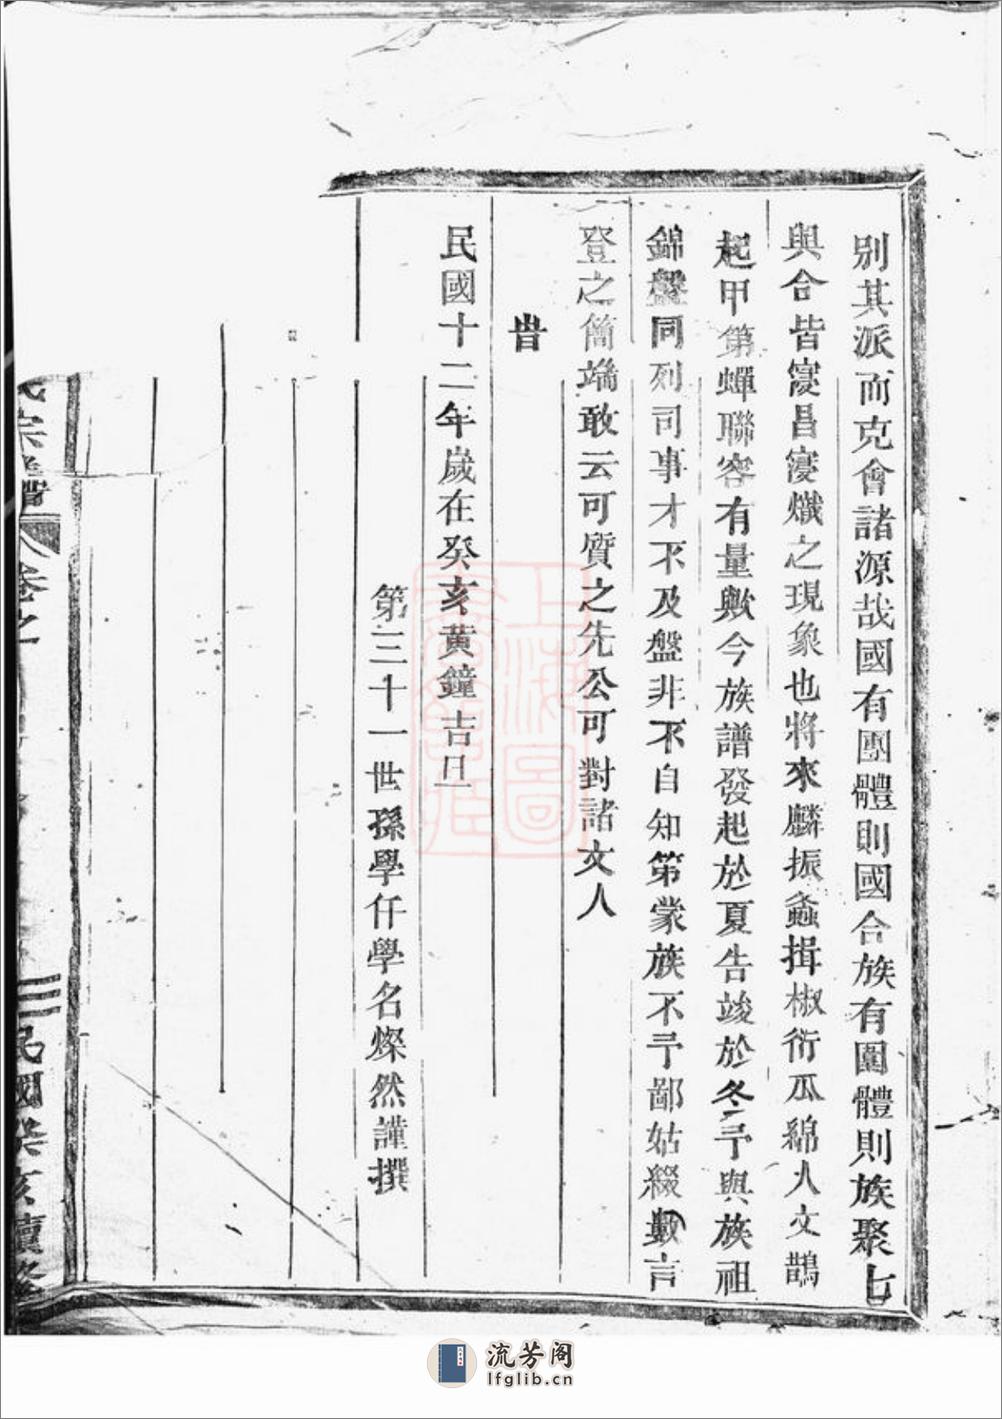 別其派而克會諸源哉國有團體則國合族有團體則族聚七
與合皆寖昌寖熾之現象也將來麟振螽揖椒衍瓜綿人文鵲
起甲第蟬聯容有量歟今族譜發起於夏告竣於冬予與族祖
錦盤同列司事才不及盤非不自知第蒙族不予鄙姑綴數言
登之簡端敢云可質之先公可對諸文人
旹
民國十二年歲在癸亥黃鐘吉旦
第三十一世孫學仟學名燦然謹撰
氏宗譜
卷之
三
民國癸亥續修
上海圖書館藏
流芳阁
lfglib.cn